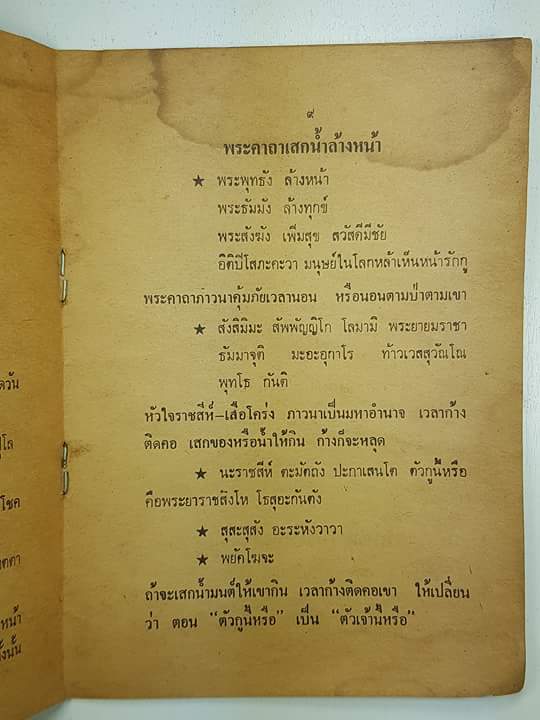 ๙
พระคาถาเสกน้ำล้างหน้า
★ พระพุทธัง ล้างหน้า
พระธัมมัง ล้างทุกข์
พระสังฆัง เพิ่มสุข สวัสดีมีชัย
อิติปิโสภะคะวา มนุษย์ในโลกหล้าเห็นหน้ารักกู
พระคาถาภาวนาคุ้มภัยเวลานอน หรือนอนตามป่าตามเขา
★ สังสิมิมะ สัพพัญญิโก โลมามิ พระยายมราชา
ธัมมาจุติ มะอะอุกาโร ท้าวเวสสุวัณโณ
พุทโธ กันติ
หัวใจราชสีห์-เสือโคร่ง ภาวนาเป็นมหาอำนาจ เวลาก้าง
ติดคอ เสกของหรือน้ำให้กิน ก้างก็จะหลุด
★ นะราชสีห์ ตะมัตถัง ปะกาเสนโต ตัวกูนี้หรือ
คือพระยาราชสิงโห โธสุอะกันตัง
★ สุสะสุสัง อะระหังวาวา
★ พยัคโฆจะ
ถ้าจะเสกน้ำมนต์ให้เขากิน เวลาก้างติดคอเขา ให้เปลี่ยน
ว่า ตอน "ตัวกูนี้หรือ" เป็น "ตัวเจ้านี้หรือ"
ดวัน
โชค
หน้า